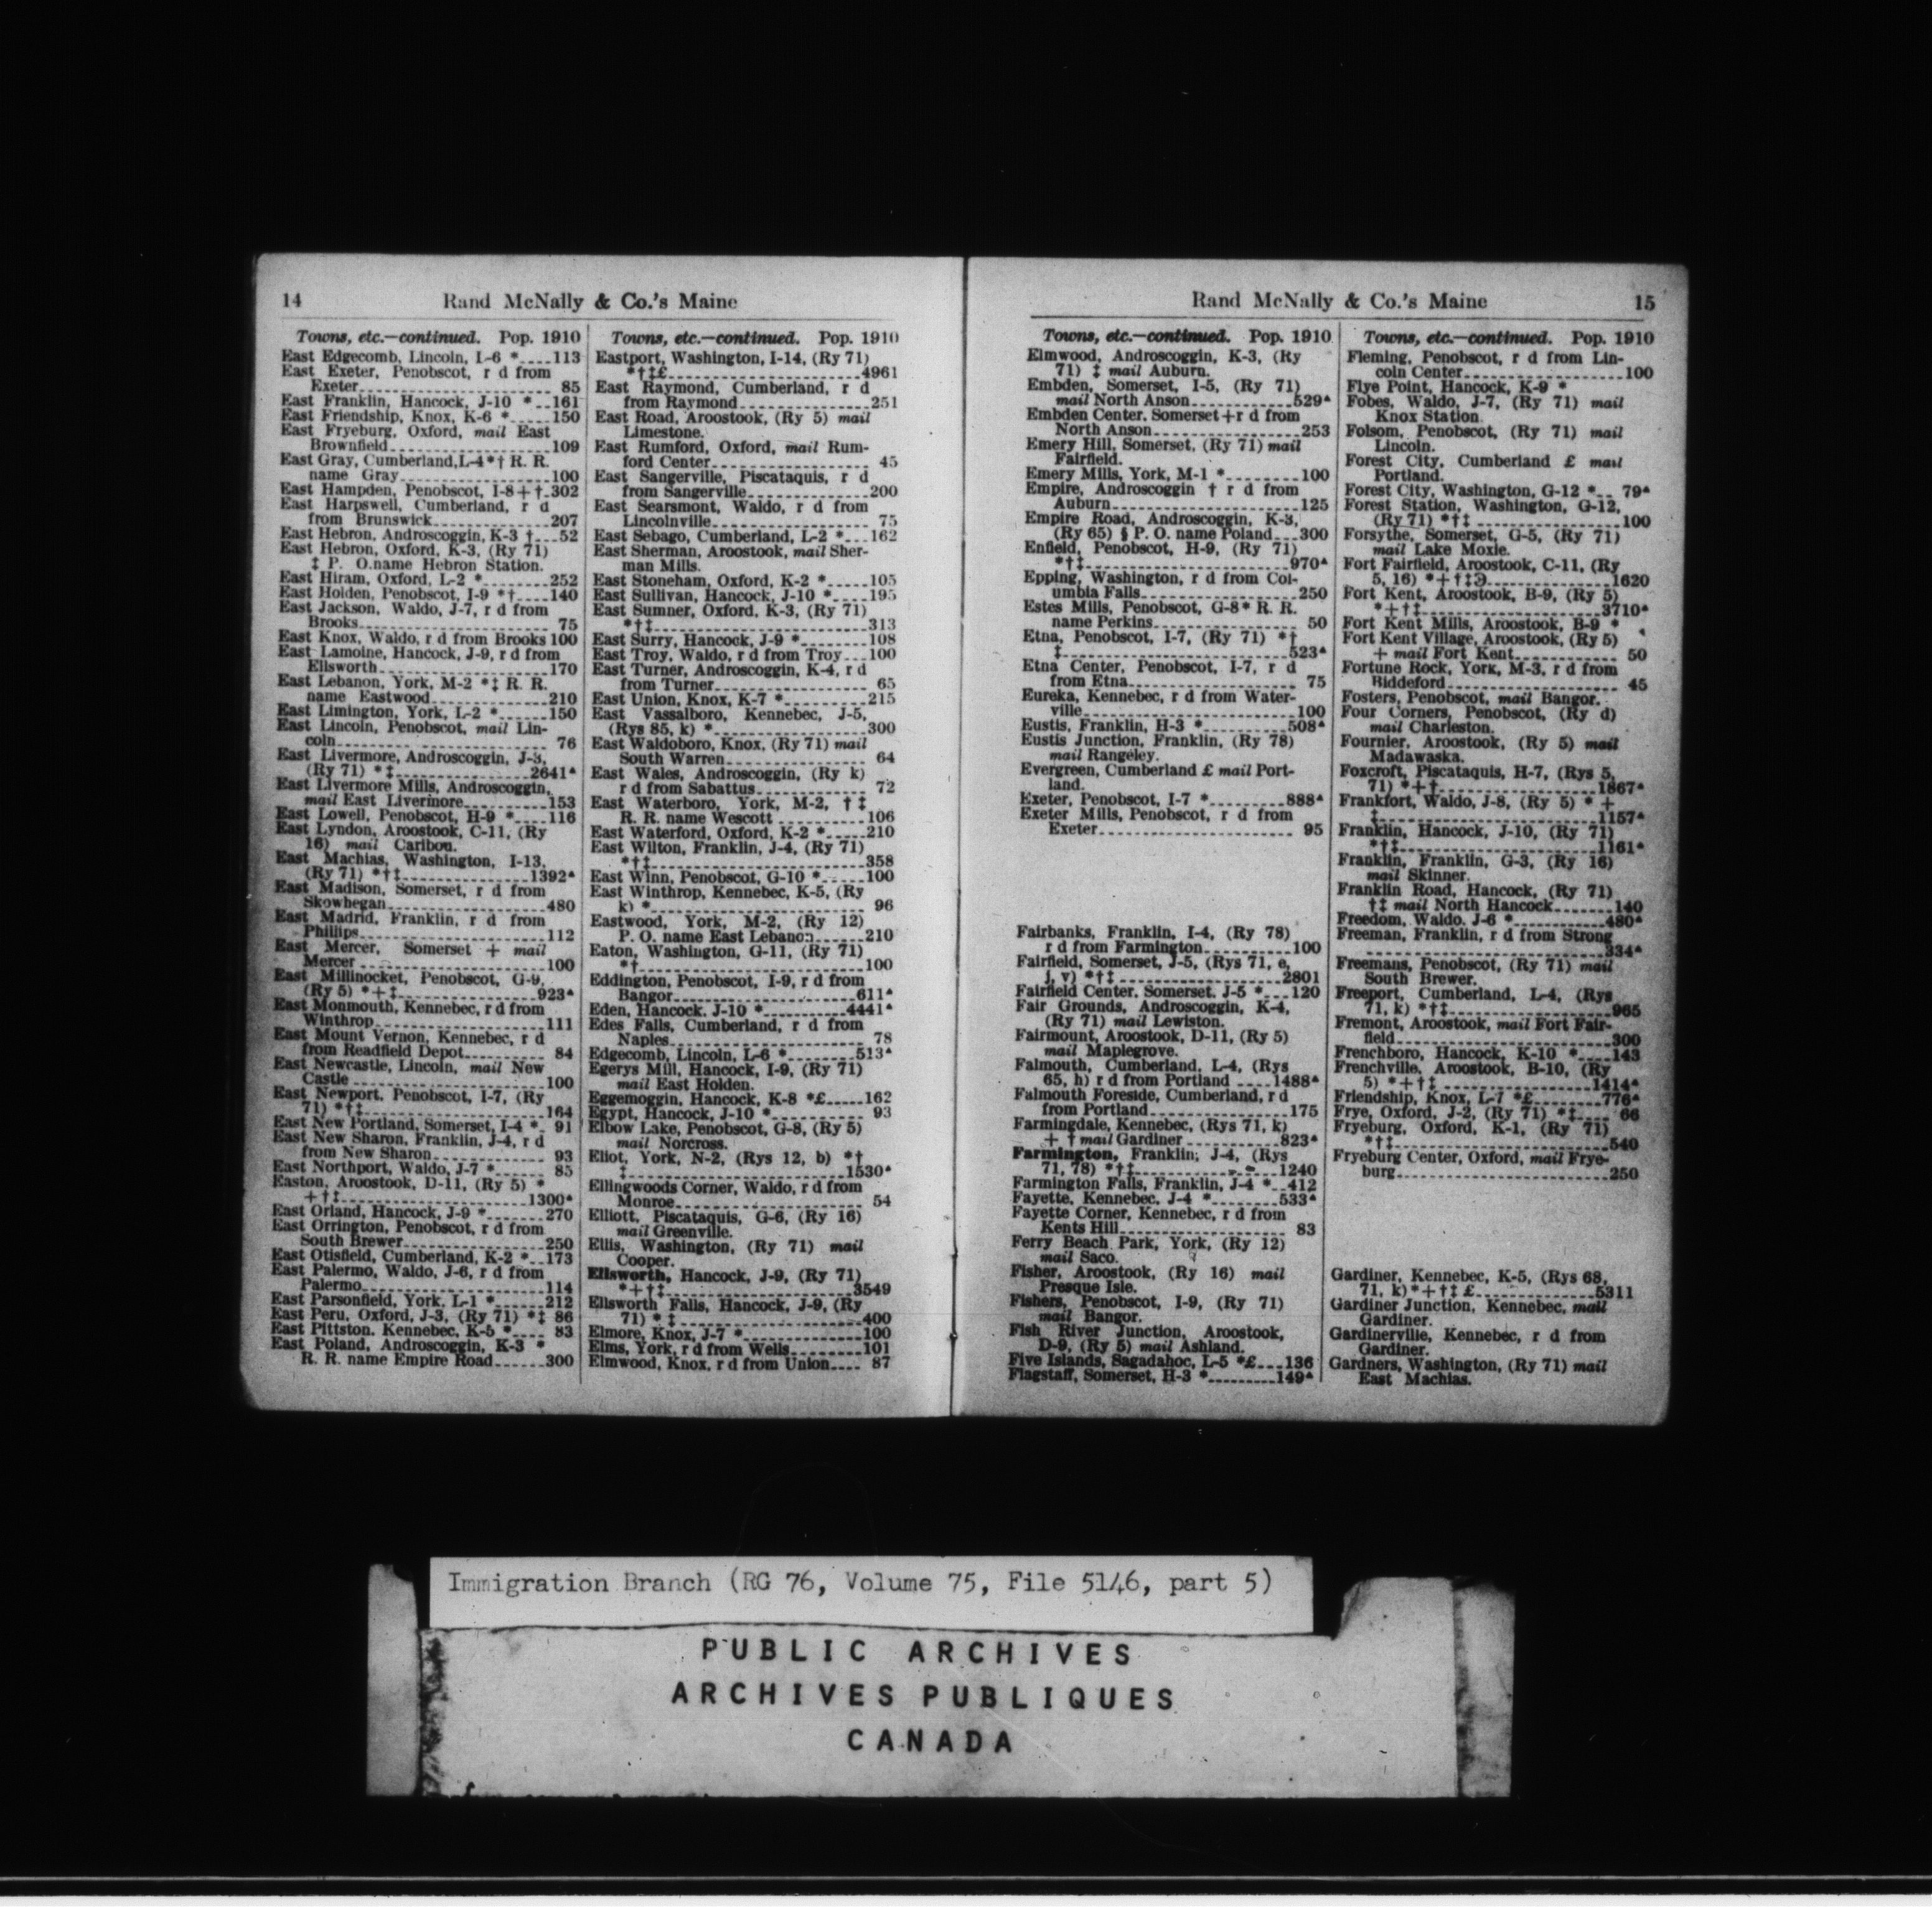 14
Rand McNally & Co.'s Maine
Towns, etc.—continued. Pop. 1910
East Edgecomb, Lincoln, L-6 *....113
East Exeter, Penobscot, r d from
Exeter....85
East Franklin, Hancock, J-10 *..161
East Friendship, Knox, K-6 *.....150
East Fryeburg, Oxford, mail East
Brownfield....109
East Gray, Cumberland, L-4*† R. R.
name Gray....100
East Hampden, Penobscot, I-8+†.302
East Harpswell, Cumberland, r d
from Brunswick....207
East Hebron, Androscoggin, K-3 †...52
East Hebron, Oxford, K-3, (Ry 71)
‡ P. O.name Hebron Station.
East Hiram, Oxford, L-2 *....252
East Holden, Penobscot, I-9 *†....140
East Jackson, Waldo, J-7, r d from
Brooks....75
East Knox, Waldo, r d from Brooks 100
East Lamoine, Hancock, J-9, r d from
Ellsworth....170
East Lebanon, York, M-2 *‡ R. R.
name Eastwood....210
East Limington, York, L-2 *....150
East Lincoln, Penobscot, mail Lin-
coln....76
East Livermore, Androscoggin, J-3,
(Ry 71) *‡....2641▲
East Livermore Mills, Androscoggin,
mail East Livermore....153
East Lowell, Penobscot, H-9 *....116
East Lyndon, Aroostook, C-11, (Ry
16) mail Caribou.
East Machias, Washington, I-13,
(Ry 71) *†‡....1392▲
East Madison, Somerset, r d from
Skowhegan....480
East Madrid, Franklin, r d from
Phillips....112
East Mercer, Somerset + mail
Mercer....100
East Millinocket, Penobscot, G-9,
(Ry 5) *+‡....923▲
East Monmouth, Kennebec, r d from
Winthrop....111
East Mount Vernon, Kennebec, r d
from Readfield Depot....84
East Newcastle, Lincoln, mail New
Castle....100
East Newport, Penobscot, I-7, (Ry
71) *†‡....164
East New Portland, Somerset, I-4 *. 91
East New Sharon, Franklin, J-4, r d
from New Sharon....93
East Northport, Waldo, J-7 *....85
Easton, Aroostook, D-11, (Ry 5) *
+†‡....1300▲
East Orland, Hancock, J-9 *....270
East Orrington, Penobscot, r d from
South Brewer....250
East Otisfield, Cumberland, K-2 *..173
East Palermo, Waldo, J-6, r d from
Palermo....114
East Parsonfield, York, L-1 *....212
East Peru, Oxford, J-3, (Ry 71) *‡ 86
East Pittston, Kennebec, K-5 *.... 83
East Poland, Androscoggin, K-3 *
R. R. name Empire Road....300
Towns, etc.—continued. Pop. 1910
Eastport, Washington, I-14, (Ry 71)
*†‡£....4961
East Raymond, Cumberland, r d
from Raymond....251
East Road, Aroostook, (Ry 5) mail
Limestone.
East Rumford, Oxford, mail Rum-
ford Center....45
East Sangerville, Piscataquis, r d
from Sangerville....200
East Searsmont, Waldo, r d from
Lincolnville....75
East Sebago, Cumberland, L-2 *...162
East Sherman, Aroostook, mail Sher-
man Mills.
East Stoneham, Oxford, K-2 *....105
East Sullivan, Hancock, J-10 *....195
East Sumner, Oxford, K-3, (Ry 71)
*†‡....313
East Surry, Hancock, J-9 *....108
East Troy, Waldo, r d from Troy...100
East Turner, Androscoggin, K-4, r d
from Turner....65
East Union, Knox, K-7 *....215
East Vassalboro, Kennebec, J-5,
(Rys 85, k) *....300
East Waldoboro, Knox, (Ry 71) mail
South Warren....64
East Wales, Androscoggin, (Ry k)
r d from Sabattus....72
East Waterboro, York, M-2, †‡
R. R. name Wescott....106
East Waterford, Oxford, K-2 *....210
East Wilton, Franklin, J-4, (Ry 71)
*†‡....358
East Winn, Penobscot, G-10 *....100
East Winthrop, Kennebec, K-5, (Ry
k) *....96
Eastwood, York, M-2, (Ry 12)
P. O. name East Lebanon....210
Eaton, Washington, G-11, (Ry 71)
*†....100
Eddington, Penobscot, I-9, r d from
Bangor....611▲
Eden, Hancock, J-10 *....4441▲
Edes Falls, Cumberland, r d from
Naples....78
Edgecomb, Lincoln, L-6 *....513▲
Egerys Mill, Hancock, I-9, (Ry 71)
mail East Holden.
Eggemoggin, Hancock, K-8 *£....162
Egypt, Hancock, J-10 *....93
Elbow Lake, Penobscot, G-8, (Ry 5)
mail Norcross.
Eliot, York, N-2, (Rys 12, b) *†
‡....1530▲
Ellingwoods Corner, Waldo, r d from
Monroe....54
Elliott, Piscataquis, G-6, (Ry 16)
mail Greenville.
Ellis, Washington, (Ry 71) mail
Cooper.
Ellsworth, Hancock, J-9, (Ry 71)
*+†‡....3549
Ellsworth Falls, Hancock, J-9, (Ry
71) * ‡....400
Elmore, Knox, J-7 *....100
Elms, York, r d from Wells....101
Elmwood, Knox, r d from Union.... 87
Rand McNally & Co.'s Maine
15
Towns, etc.—continued. Pop. 1910
Elmwood, Androscoggin, K-3, (Ry
71) ‡ mail Auburn.
Embden, Somerset, I-5, (Ry 71)
mail North Anson....529▲
Embden Center, Somerset+r d from
North Anson....253
Emery Hill, Somerset, (Ry 71) mail
Fairfield.
Emery Mills, York, M-1 *....100
Empire, Androscoggin † r d from
Auburn....125
Empire Road, Androscoggin, K-3,
(Ry 65) § P. O. name Poland...300
Enfield, Penobscot, H-9, (Ry 71)
*†‡....970▲
Epping, Washington, r d from Col-
umbia Falls....250
Estes Mills, Penobscot, G-8* R. R.
name Perkins....50
Etna, Penobscot, I-7, (Ry 71) *†
‡....523▲
Etna Center, Penobscot, I-7, r d
from Etna....75
Eureka, Kennebec, r d from Water-
ville....100
Eustis, Franklin, H-3 *....508▲
Eustis Junction, Franklin, (Ry 78)
mail Rangeley.
Evergreen, Cumberland £ mail Port-
land.
Exeter, Penobscot, I-7 *....888▲
Exeter Mills, Penobscot, r d from
Exeter....95
Fairbanks, Franklin, I-4, (Ry 78)
r d from Farmington....100
Fairfield, Somerset, J-5, (Rys 71, e,
j, v) *†‡....2801
Fairfield Center, Somerset, J-5 *...120
Fair Grounds, Androscoggin, K-4,
(Ry 71) mail Lewiston.
Fairmount, Aroostook, D-11, (Ry 5)
mail Maplegrove.
Falmouth, Cumberland, L-4, (Rys
65, h) r d from Portland ....1488▲
Falmouth Foreside, Cumberland, r d
from Portland....175
Farmingdale, Kennebec, (Rys 71, k)
+ † mail Gardiner....823▲
Farmington, Franklin, J-4, (Rys
71, 78) *†‡....1240
Farmington Falls, Franklin, J-4 *..412
Fayette, Kennebec, J-4 *....533▲
Fayette Corner, Kennebec, r d from
Kents Hill....83
Ferry Beach Park, York, (Ry 12)
mail Saco.
Fisher, Aroostook, (Ry 16) mail
Presque Isle.
Fishers, Penobscot, I-9, (Ry 71)
mail Bangor.
Fish River Junction, Aroostook,
D-9, (Ry 5) mail Ashland.
Five Islands, Sagadahoc, L-5 *£...136
Flagstaff, Somerset, H-3 *....149▲
Towns, etc.—continued. Pop. 1910
Fleming, Penobscot, r d from Lin-
coln Center....100
Flye Point, Hancock, K-9 *
Fobes, Waldo, J-7, (Ry 71) mail
Knox Station.
Folsom, Penobscot, (Ry 71) mail
Lincoln.
Forest City, Cumberland £ mail
Portland.
Forest City, Washington, G-12 *.. 79▲
Forest Station, Washington, G-12,
(Ry 71) *†‡....100
Forsythe, Somerset, G-5, (Ry 71)
mail Lake Moxie.
Fort Fairfield, Aroostook, C-11, (Ry
5, 16) *+†‡....1620
Fort Kent, Aroostook, B-9, (Ry 5)
*+†‡....3710▲
Fort Kent Mills, Aroostook, B-9 *
Fort Kent Village, Aroostook, (Ry 5)
+ mail Fort Kent....50
Fortune Rock, York, M-3, r d from
Biddeford....45
Fosters, Penobscot, mail Bangor.
Four Corners, Penobscot, (Ry d)
mail Charleston.
Fournier, Aroostook, (Ry 5) mail
Madawaska.
Foxcroft, Piscataquis, H-7, (Rys 5,
71) *+†....1867▲
Frankfort, Waldo, J-8, (Ry 5) * +
‡....1157▲
Franklin, Hancock, J-10, (Ry 71)
*†‡....1161▲
Franklin, Franklin, G-3, (Ry 16)
mail Skinner.
Franklin Road, Hancock, (Ry 71)
†‡ mail North Hancock....140
Freedom, Waldo, J-6 *....480▲
Freeman, Franklin, r d from Strong
....334▲
Freemans, Penobscot, (Ry 71) mail
South Brewer.
Freeport, Cumberland, L-4, (Rys
71, k) *†‡....965
Fremont, Aroostook, mail Fort Fair-
field....300
Frenchboro, Hancock, K-10 *....143
Frenchville, Aroostook, B-10, (Ry
5) *+†‡....1414▲
Friendship, Knox, L-7 *£....776▲
Frye, Oxford, J-2, (Ry 71) *‡.... 66
Fryeburg, Oxford, K-1, (Ry 71)
*†‡....540
Fryeburg Center, Oxford, mail Frye-
burg....250
Gardiner, Kennebec, K-5, (Rys 68,
71, k)*+†‡ £....5311
Gardiner Junction, Kennebec, mail
Gardiner.
Gardinerville, Kennebec, r d from
Gardiner.
Gardners, Washington, (Ry 71) mail
East Machias.
Immigration Branch (RG 76, Volume 75, File 5146, part 5)
PUBLIC ARCHIVES
ARCHIVES PUBLIQUES
CANADA